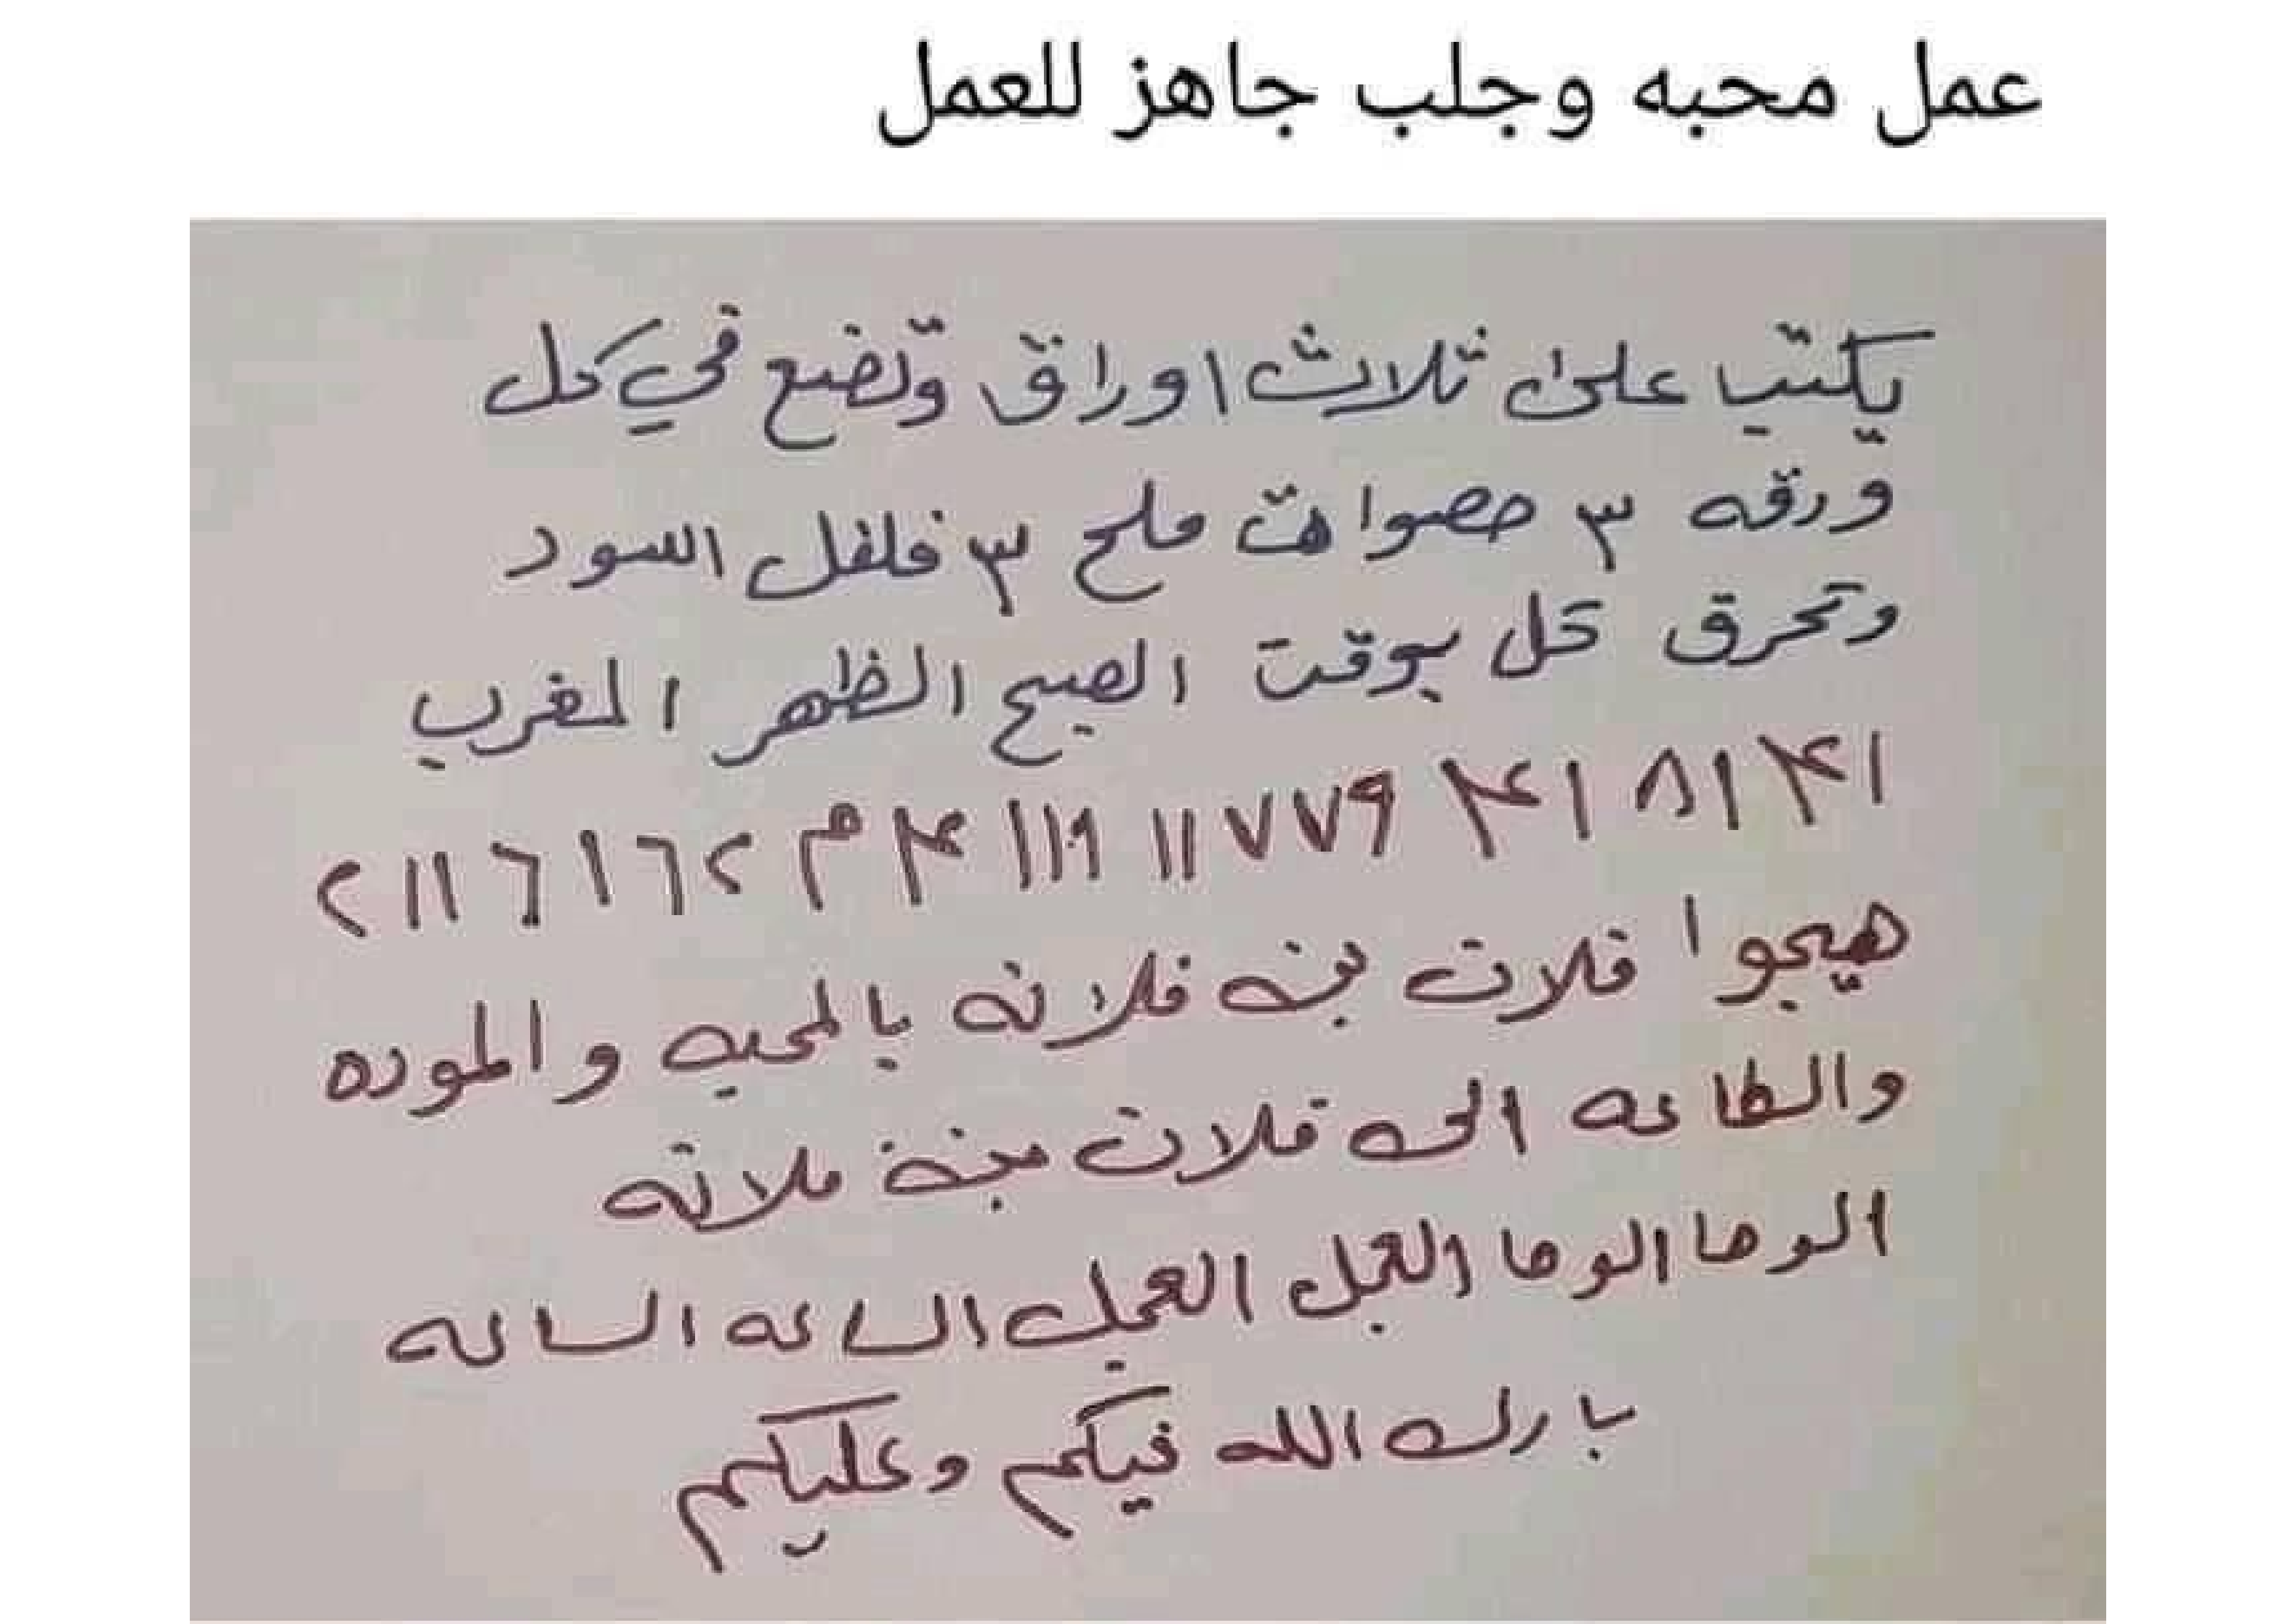 عمل محبه وجلب جاهز للعمل
يكتب على ثلاث اوراق وتضع في كل
ورقه ٣ حصوات ملح ٣ فلفل السود
وتحرق كل بوقت الصبح الظهر المغرب
هيجوا فلان بن فلانه بالمحبه والموده
والطاعه الى فلان بن فلانه
الوحا الوحا العجل العجل الساعه الساعه
بارك الله فيكم وعليكم